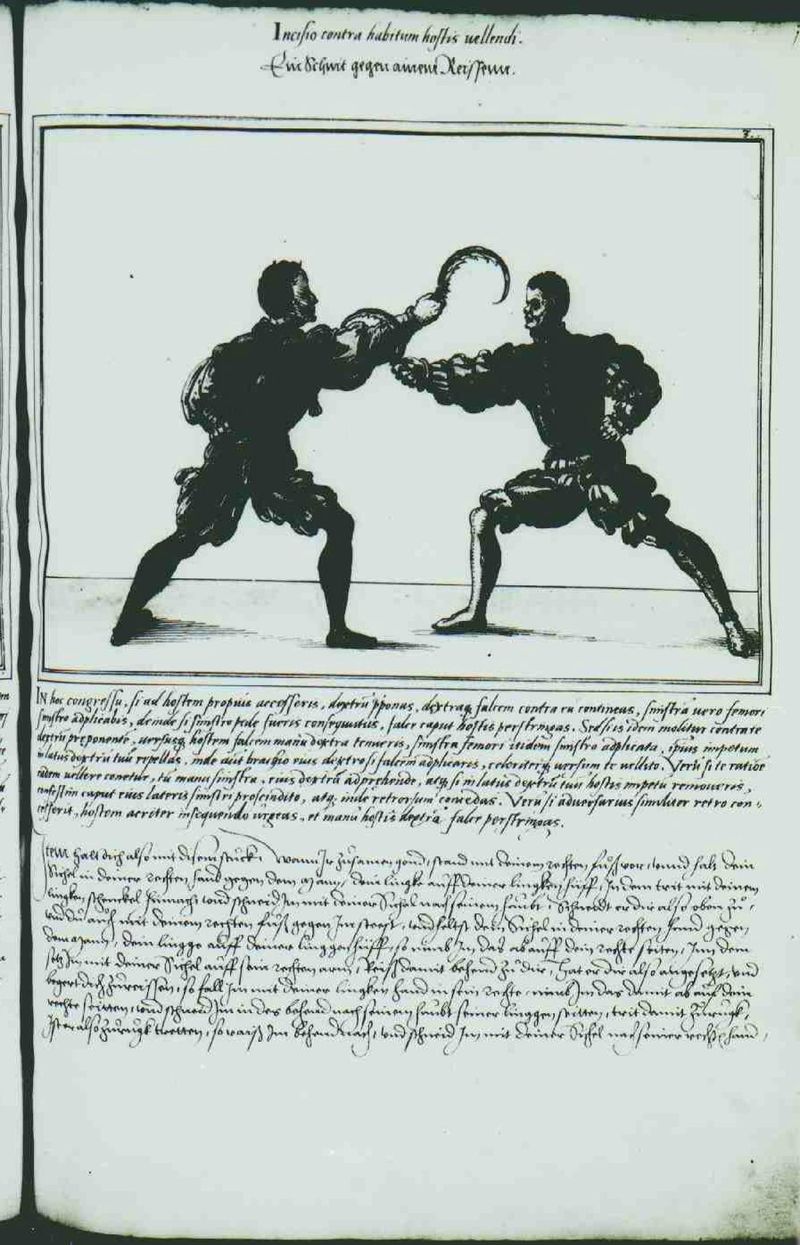 Incisio contra habitum hostis uellendi.
Ein Schnit gegen ainem Reissenn.
7.
IN hoc congressu, si ad hostem propius accesseris, dextrũ p̃ponas, dextraq; falcem contra eũ contineas, sinistrã uero femori
sinistro adplicabis, deinde si sinistro pede fueris consequutus, falce caput hostis perstringas. Sed si is idem molitur contra te
dextrũ preponente, uersusq; hostem falcem manu dextra tenueris, sinistra femori itidem sinistro adplicata, ipsius impetum
in latus dextrũ tuũ repellas, inde aũt brachio eius dextro si falcem adplicaris, celeriterq; uersum te uellito. Verũ si te ratiõe
eadem uellere conetur, tu manu sinistra, eius dextrã adprehende, atq; si in latus dextrũ tuũ hostis impetũ remoueris,
confestim caput eius lateris sinistri proscindito, atq; inde retrorsum concedas. Verũ si aduersarius similiter retro con-
cesserit, hostem acriter insequendo urgeas, et manũ hostis dextrã falce perstringas.
Item halt dich also mit disem stuck, Wann Jr zusamen gond, stand mit deinem rechten fuoss vor, vnnd halt dein
Sichel in deiner rechten hand gegen dem Mann, dein lingke auff deiner lingken hüff, Jn dem trit mit deinem
lingken schenckel hinnach vnd schneid Jm mit deiner Sichel nach seinem haubt. Schneidt er dir also oben zuo,
vnd du auch mit deinem rechten fuoss gegen Jm steest, vnd heltst dein Sichel in deiner rechten hennd gegen
dem Mann, dein lingge auff deiner linggen hüff, so nimb Jm das ab auff dein rechte seiten, Jnn dem
setz Jm mit deiner Sichel auff sein rechten arm, Reiss damit behend zuo dir, hat er dir also angesetzt, vnd
begert dich zureissen, so fall Jm mit deiner lingken hand in sein rechte, nimb Jm das damit ab auff dein
rechte seitten, vnd schneid Jm in des behend nach seinem haubt seiner linggen seitten, trit damit zuruogk,
Jst er also zuruogk tretten, so raiss Jm behend nach, vnd schneid Jm mit deiner Sichel nach seiner rechtẽ hand,